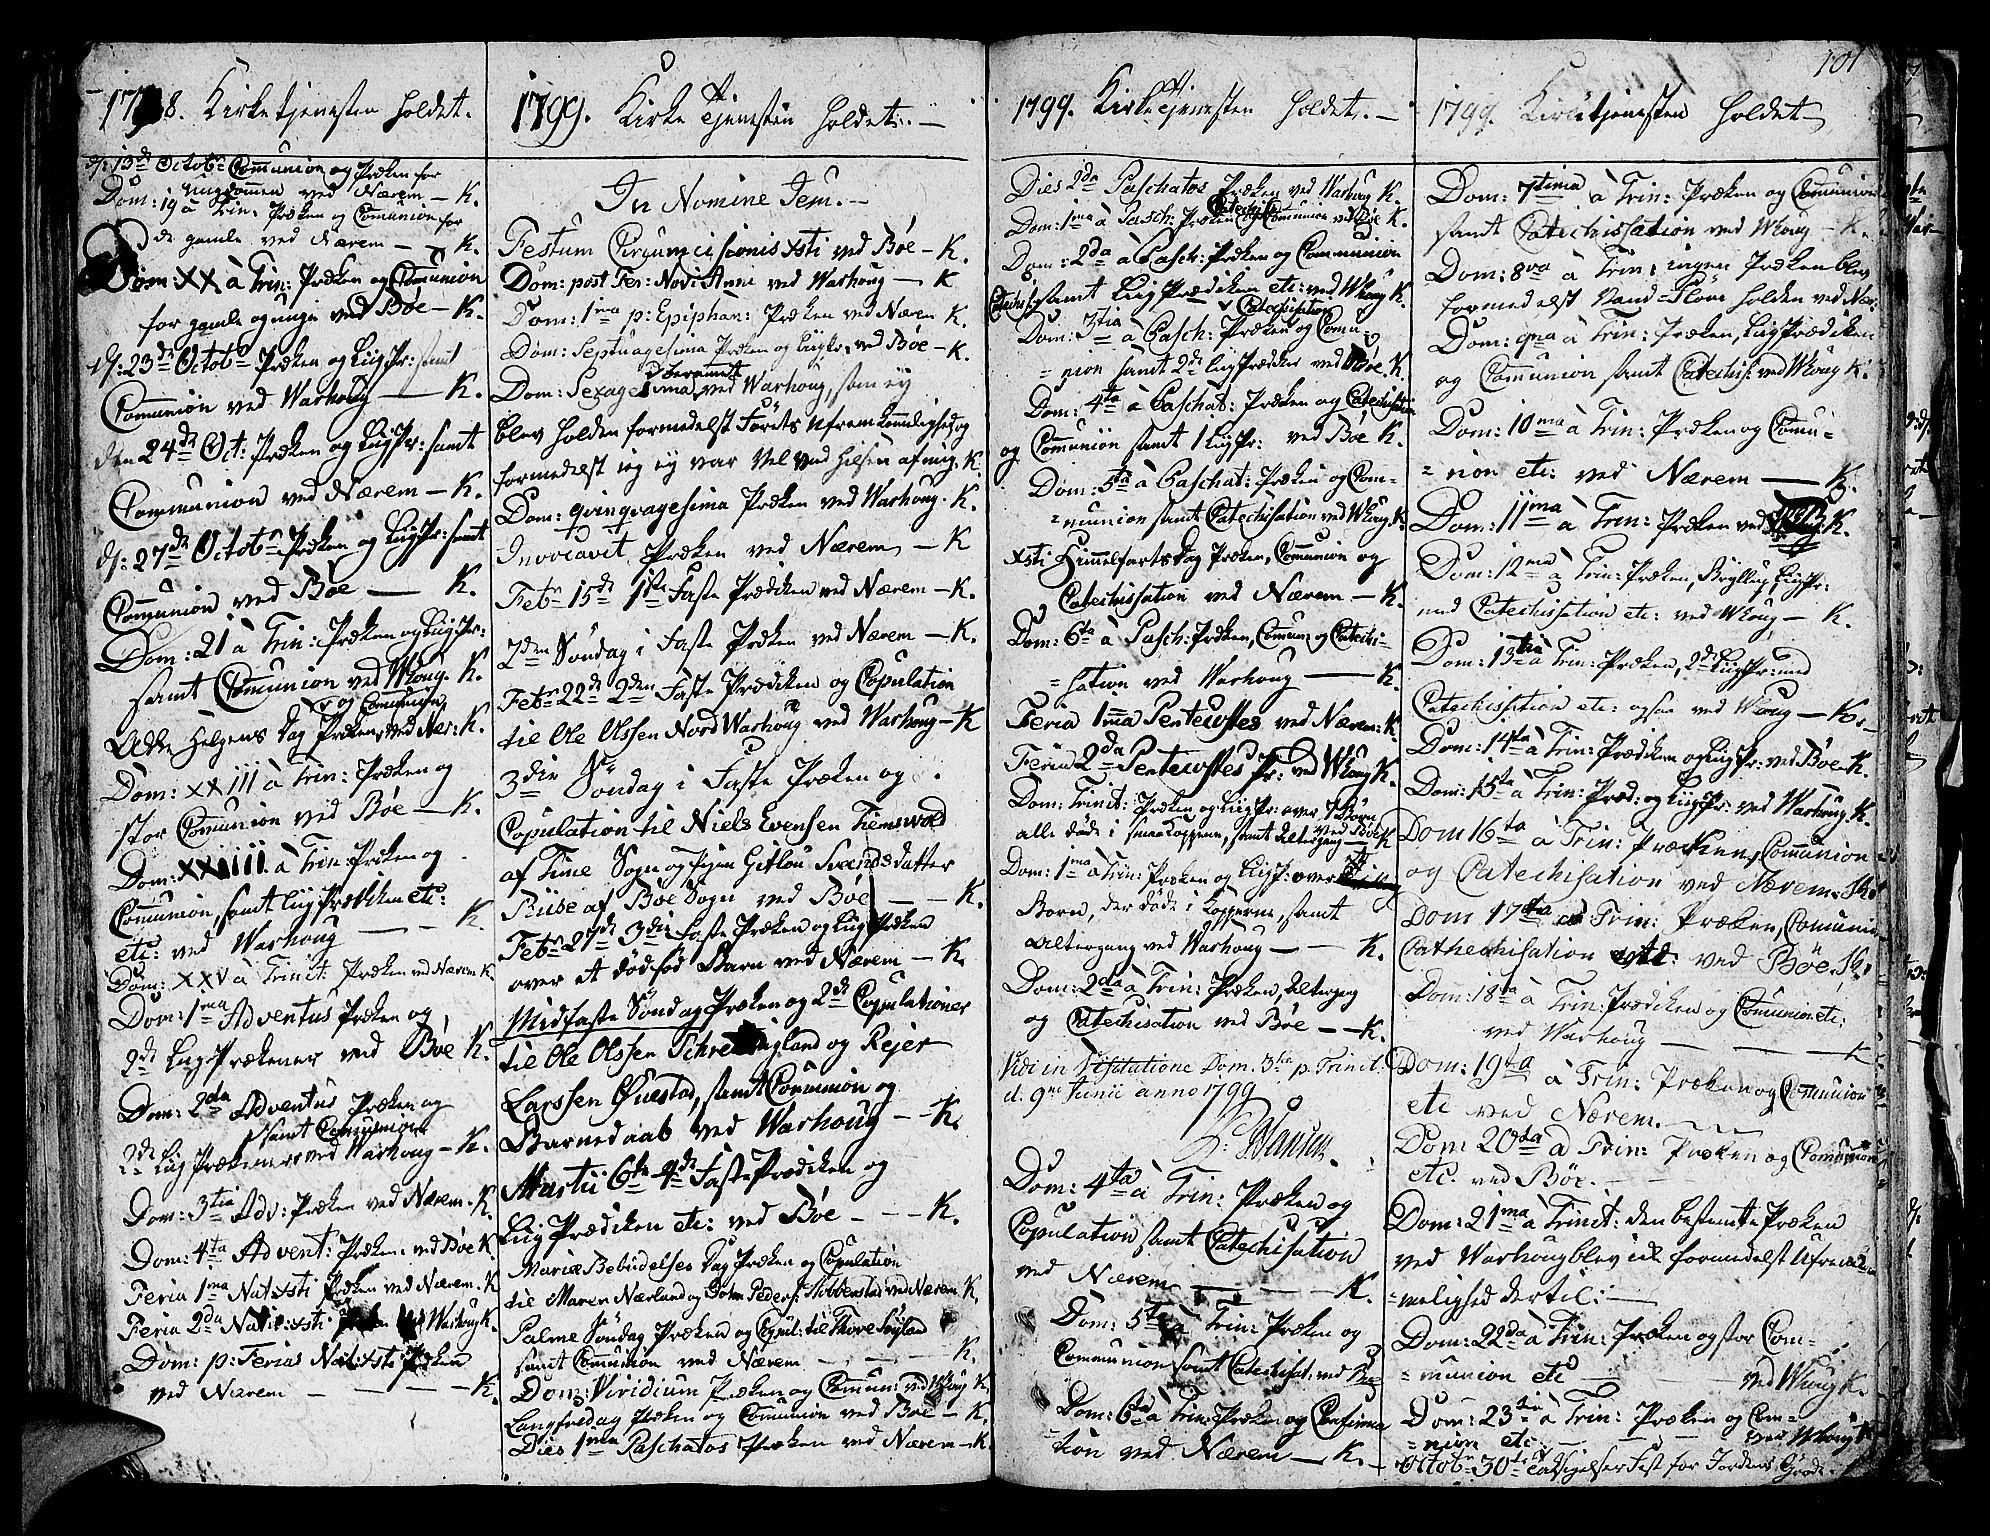 1798. Kirketjenesten holdet.
d: 13de Octobr Communion og Præken for
Ungdommen ved Nærem — K.
Dom: 19 à Trin: Præken og Comunion for
de gamle ved Nærem — K.
Dom: XX à Trin: Præken og Comunion
for gamle og unge ved Bøe — K.
d: 23de Octobr Præken og Liigpr: samt
Communion ved Warhoug — K.
den 24de Oct: Præken og Liigpr: samt
Communion ved Nærem — K.
d: 27de Octobr Præken og Liigpr: samt
Communion ved Bøe — K.
Dom: 21 à Trin: Præken og Liigpr:
samt Comunion ved Whoug. K.
og Comunion
Alle Helgens Dag Præken, ved Nær: K.
Dom: XXIII à Trin: Præken og
stor Comunion ved Bøe — K.
Dom: XXIIII à Trin: Præken og
Comunion, samt Liigprædiken etc:
etc: ved Warhoug — K.
Dom: XXV à Trinit: Præken ved Nærem K.
Dom: 1ma Adventus Præken og
2de Liig-Prækener ved Bøe K.
Dom: 2da Adventus Præken og
samt Comunion
2de Liigprækener ved Warhoug — K.
Dom: 3tia Adv: Præken ved Nærem. K.
Dom: 4ta Advent: Præken ved Bøe K.
Feria 1ma Nat: xsti Præken ved Nærem. K
Feria 2da Nativ: xsti Præken ved Warhoug K.
Dom: p: Ferias Nat: xsti Præken
ved Nærem — — — K.
1799. Kirke Tjenesten holdet. —
In Nomine Jesu. —
Festum Circumcisionis xsti ved Bøe — K.
Dom: post Fer: Novi Anni ved Warhoug — K
Dom: 1ma p: Epiphan: Præken ved Nærem K.
Dom: Septuagesima Præken og Liigpr. ved Bøe — K.
Dom: Sexagesima ved Warhoug, som ey
blev holden formedelst Førets Ufremkommelighed og
formedelst jeg ey var vel ved Hilsen af mig. K.
Dom: qvinqvagesima Præken ved Warhoug. K.
Invocavit Præken ved Nærem — K
Febr 15de 1ste Faste Prædiken ved Nærem — K.
2den Søndag i Faste Præken ved Nærem — K.
Febr 22de 2den Faste Prædiken og Copulation
til Ole Olssen Nord Warhoug ved Warhoug — K
3die Søndag i Faste Præken og
Copulation til Niels Evensen Tiemsvold
af Time Sogn og Pigen Gitlou Svendsdatter
Riise af Bøe Sogn ved Bøe — — K.
Febr 27de 3die Faste Præken og Liigpræken
over et dødfød Barn ved Nærem — K.
Midfaste Søndag Præken og 2de Copulationer
til Ole Olssen Schretingland og Rejer
Larssen Øvestad, samt Comunion og
Barnedaab ved Warhoug — K.
Martii 6te 4de Faste Prædiken og
Liig Prædiken etc: ved Bøe — — K.
Mariæ Bebudelses Dag Præken og Copulation
til Maren Nærland og John Peders: Stibberstad ved Nærem K.
Palme Søndag Præken og Copul: til Thore Høyland
samt Comunion ved Nærem — — — K.
Dom: Viridium Præken og Comun: ved Whoug K.
Langfredag Præken og Comunion ved Bøe — K.
Dies 1ma Paschatos Præken ved Nærem — K
1799. Kirke Tjenesten holdet. —
Dies 2da Paschatos Præken ved Warhoug K.
Catechis:
Dom: 1ma à Pasch: Præken og Comunion ved Bøe K.
Dom: 2da à Pasch: Præken og Communion
Catechis: samt Liigprædiken etc: ved Whoug K.
Catechisation
Dom: 3tia à Pasch: Præken og Comu-
= nion samt 2de Ligprædiker ved Bøe K.
Dom: 4ta à Paschat: Præken og Catechisation
og Comunion samt 1 Liigpr: ved Bøe K.
Dom: 5ta à Paschat: Præken og Com-
= munion samt Catechisation ved Whoug K.
Xsti Himmelfarts Dag Præken, Comunion og
Catechisation ved Nærem — K.
Dom: 6ta à Pasch: Præken, Comun: og Catechi-
= sation ved Warhoug — K.
Feria 1ma Pentecostes ved Nærem: K.
Feria 2da Pentecostes Pr: ved Whoug K.
Dom: Trinit: Præken og Liigpr: over 7 Børn
alle døde i smaakopperne, samt Altergang ved Bøe — K
Dom: 1ma à Trin: Præken og Liigpr: over
Børn, der døde i Kopperne, samt
Altergang ved Warhoug — — K.
Dom: 2da à Trin: Præken, Altergang
og Catechisation ved Bøe — — K.
Vidi in Visitatione Dom. 3tia p. Trinit.
d. 9ne Junii anno 1799
P. Hansen.
Dom: 4ta à Trin: Præken og
Copulation samt Catechisation
ved Nærem — — — K.
Dom: 5ta à Trin: Præken og
Communion samt Catechisat: ved Bøe
Dom: 6ta à Trin: Præken og Confirma
tion ved Nærem — K. —
101
1799. Kirketjenesten holdet —
Dom: 7tima à Trin: Præken og Comunion
samt Catechisation ved Whoug — K.
Dom: 8va à Trin: ingen Præken blev
formedelst Vand-Fløm holden ved Nær.
Dom: 9na à Trin: Præken, Liigprædiken
og Comunion samt Catechis: ved Whoug K.
Dom: 10ma à Trin: Præken og Comu-
= nion etc: ved Nærem — K.
Dom: 11ma à Trin: Præken ved K.
Dom: 12ma à Trin: Præken, Bryllup, Liigpr:
med Catechisation etc: ved Whoug — K.
Dom: 13tia à Trin: Præken, 2de Liigpr: med
Catechisation etc: ogsaa ved Whoug — K.
Dom: 14ta à Trin: Prædiken og Liigpr: ved Bøe K.
Dom: 15ta à Trin: Præd: og Liigpr: ved Warhoug K.
Dom 16ta à Trin: Præken, Comunion
og Catechisation ved Nærem. K.
Dom 17ta à Trin: Præken, Comunion
Cathechisation etc: ved Bøe. K.
Dom: 18ta à Trin: Prædiken og Comunion etc:
ved Warhoug — K
Dom: 19ta à Trin: Præken og Comunion
etc ved Nærem. —
Dom 20ta à Trin: Præken og Comunion
etc. ved Bøe. — — —
Dom: 21ma à Trinit: den bestemte Præken
ved Warhoug blev ick formedelst Ufrem
=melighed dertil: —
Dom: 22da à Trin: Præken og stor Com-
= munion etc — — ved Whoug K.
Dom: 23tia à Trin: Præken og Com-
= nion etc: — — — ved Whoug K
Octobr 30te Taksigelser Fest for Jordens Grøde